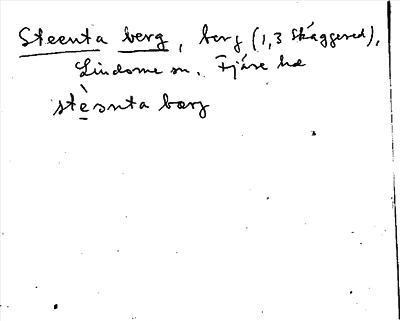 Steenta berg, berg (1,3 Skäggered),
Lindome sn. Fjäre hd
stèənta bærj